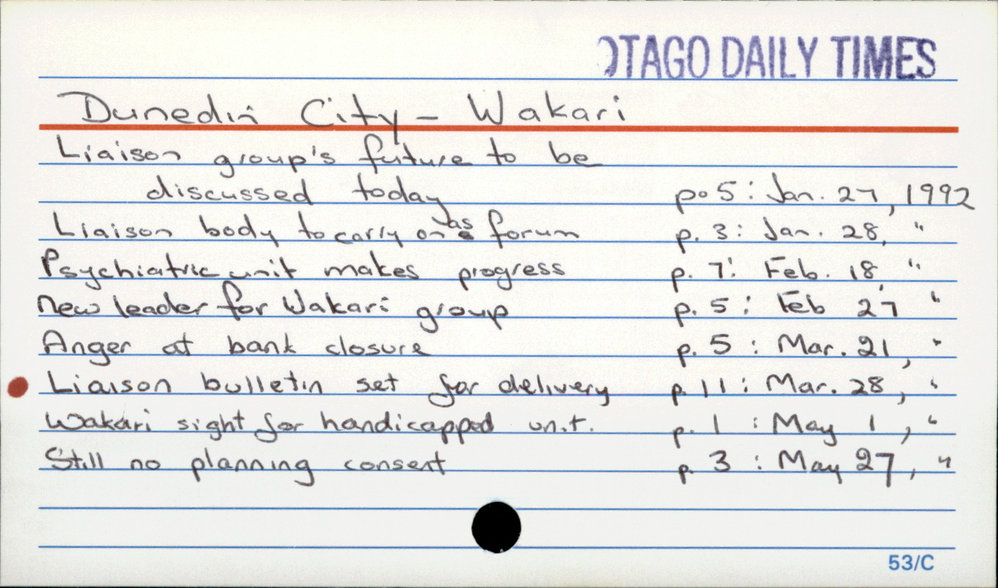 OTAGO DAILY TIMES
Dunedin City - Wakari
Liaison group's future to be
discussed today po 5: Jan. 27, 1992
Liaison body to carry on as forum p. 3: Jan. 28, "
Psychiatric unit makes progress p. 7: Feb. 18 "
New leader for Wakari group p. 5: Feb 27 "
Anger at bank closure p. 5: Mar. 21, "
Liaison bulletin set for delivery p. 11: Mar. 28, "
Wakari sight for handicapped unit. p. 1: May 1, "
Still no planning consent p. 3: May 27, "
53/C